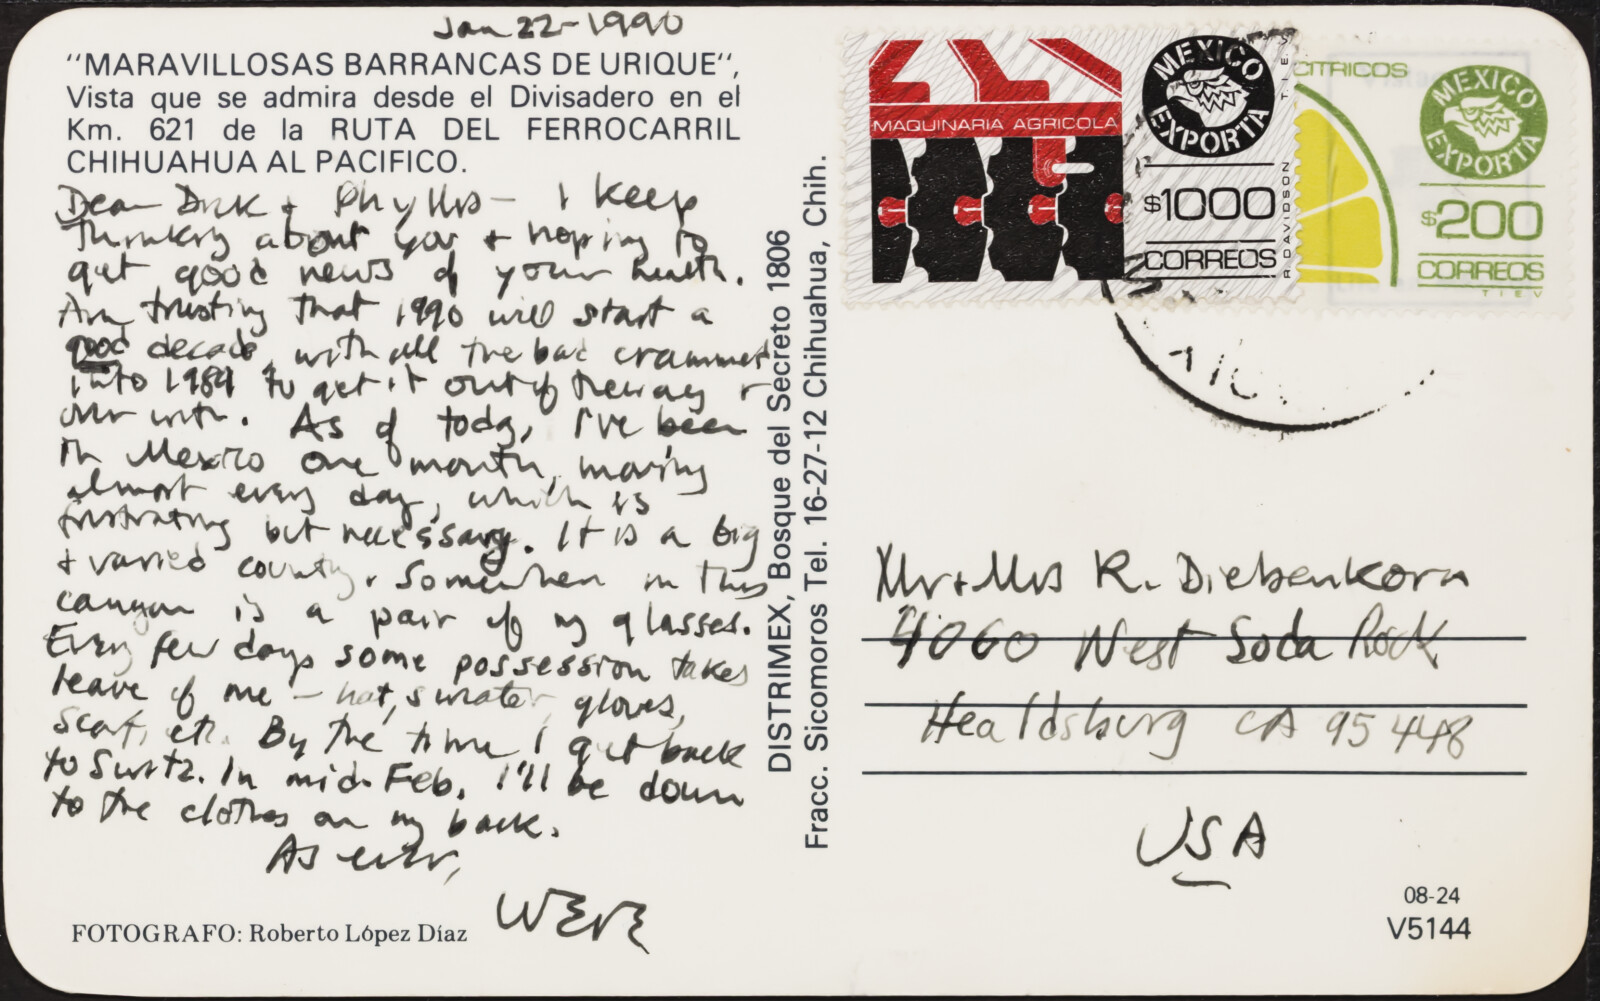 Jan 22-1990
"MARAVILLOSAS BARRANCAS DE URIQUE",
Vista que se admira desde el Divisadero en el
Km. 621 de la RUTA DEL FERROCARRIL
CHIHUAHUA AL PACIFICO.
Dear Dick + Phyllis - I keep
thinking about you + hoping to
get good news of your health.
Am trusting that 1990 will start a
good decade, with all the bad crammed
into 1989 to get it out of the way +
over with. As of today, I've been
in Mexico one month, moving
almost every day, which is
frustrating but necessary. It is a big
+ varied country. Somewhere in this
canyon is a pair of my glasses.
Every few days some possession takes
leave of me - hat, sweater, gloves,
scarf, etc. By the time I get back
to Switz. in mid-Feb, I'll be down
to the clothes on my back.
As ever,
FOTOGRAFO: Roberto López Díaz
DISTRIMEX, Bosque del Secreto 1806
Fracc. Sicomoros Tel. 16-27-12 Chihuahua, Chih.
MAQUINARIA AGRICOLA
MEXICO
EXPORTA
$1000
CORREOS
R DAVIDSON
TIES
CITRICOS
MEXICO
EXPORTA
$200
CORREOS
TIEV
Mr + Mrs R. Diebenkorn
4060 West Soda Rock
Healdsburg CA 95448
USA
08-24
V5144